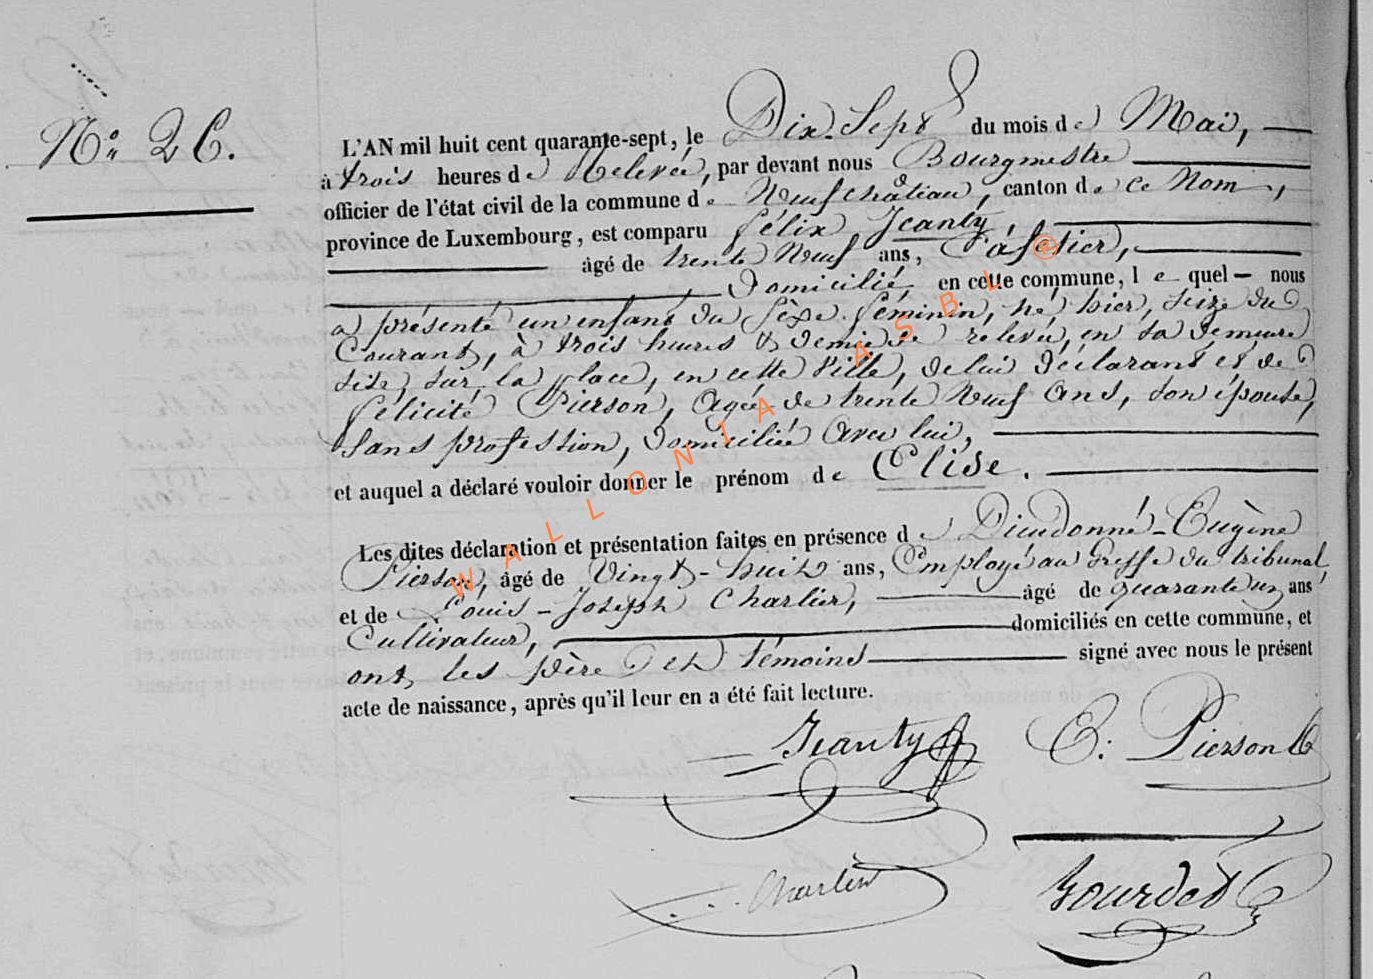 N° 26.
L'AN mil huit cent quarante-sept, le Dix-Sept du mois de Mai,
à trois heures de Relevée, par devant nous Bourgmestre
officier de l'état civil de la commune de Neufchâteau, canton de ce Nom,
province de Luxembourg, est comparu Félix Jeanty,
âgé de trente Neuf ans, Cafetier,
Domicilié en cette commune, lequel nous
a présenté un enfant du Sèxe féminin, né hier, seize du
Courant, à trois heures & demie de relevée, en sa demeure
sise, sur la place, en cette Ville, de lui Déclarant et de
Félicité Pierson, Agée de trente Neuf Ans, son épouse,
Sans profession, domiciliée avec lui,
et auquel a déclaré vouloir donner le prénom de Elise.
Les dites déclaration et présentation faites en présence de Dieudonné-Eugène
Pierson, âgé de Vingt-huit ans, Employé au Greffe du tribunal,
et de Louis-Joseph Charlier, âgé de quarante un ans
Cultivateur, domiciliés en cette commune, et
ont, les père et témoins signé avec nous le présent
acte de naissance, après qu'il leur en a été fait lecture.
Jeanty E: Pierson
Charlier Bourdet
WALLONIA ASBL @